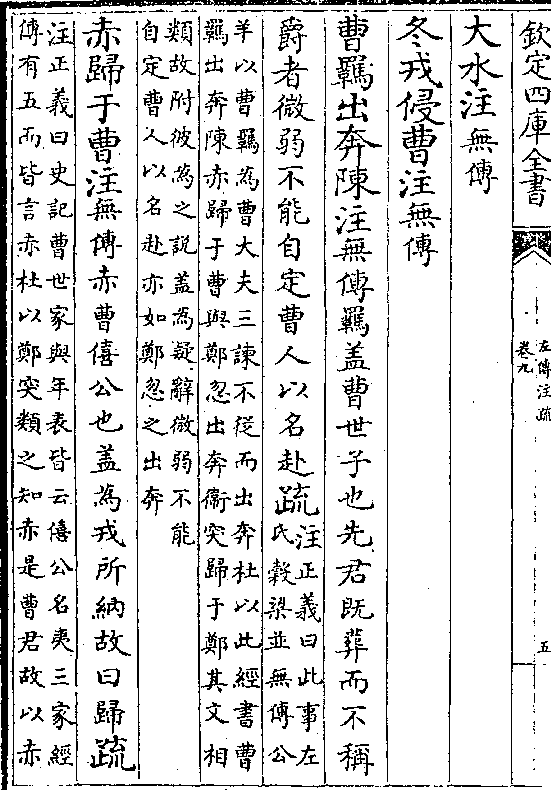 欽定四庫全書
左傳注疏
卷九
五
大水注無傳
冬戎侵曹注無傳
曹羈出奔陳注無傳羈盖曹世子也先君既葬而不稱
爵者微弱不能自定曹人以名赴疏
注正義曰此事左
氏穀梁並無傳公
羊以曹羈為曹大夫三諫不從而出奔杜以此經書曹
羈出奔陳赤歸于曹與鄭忽出奔衞突歸于鄭其文相
類故附彼為之說盖為疑辭微弱不能
自定曹人以名赴亦如鄭忽之出奔
赤歸于曹注無傳赤曹僖公也盖為戎所納故曰歸疏
注正義曰史記曹世家與年表皆云僖公名夷三家經
傳有五而皆言赤杜以鄭突類之知赤是曹君故以赤